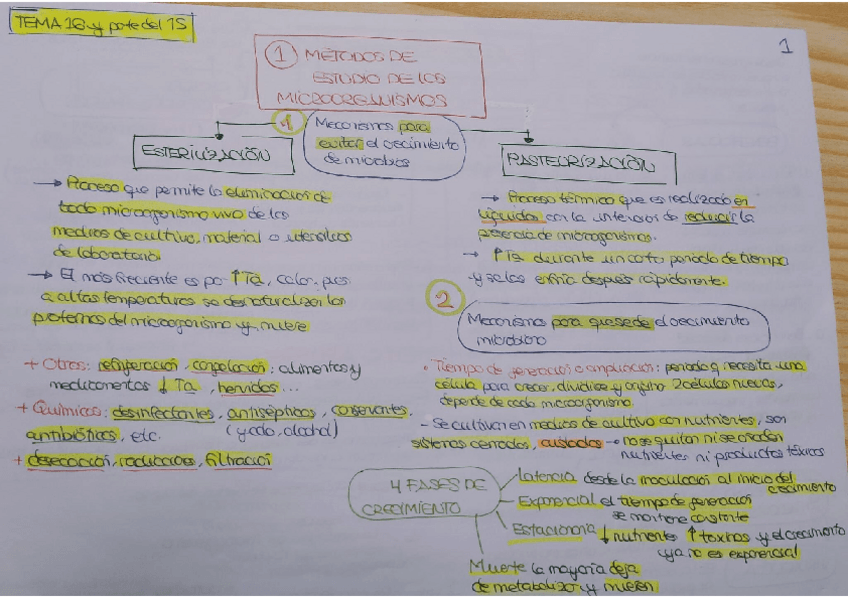 TEMA 18 y parte del 15
1
1 MÉTODOS DE
ESTUDIO DE LOS
MICROORGANISMOS
1 Mecanismos para
evitar el crecimiento
de microbios
ESTERILIZACIÓN
→ Proceso que permite la eliminación de
todo microorganismo vivo de los
medios de cultivo, material o utensilios
de laboratorio
→ El más frecuente es por ↑Ta, calor, pues
a altas temperaturas se desnaturalizan las
proteínas del microorganismo y muere
+ Otros: refrigeración, congelación: alimentos y
medicamentos ↓ Ta, hervidos...
+ Químicos: desinfectantes, antisépticos, conservantes,
antibióticos, etc. (yodo, alcohol)
+ desecación, radiación, filtración
PASTEURIZACIÓN
→ Proceso térmico que es realizado en
líquidos con la intención de reducir la
presencia de microorganismos.
→ ↑Ta durante un corto periodo de tiempo
y se los enfría después rápidamente.
2
Mecanismos para que se dé el crecimiento
microbiano
• Tiempo de generación o duplicación: periodo q necesita una
célula para crecer, dividirse y originar 2 células nuevas,
depende de cada microorganismo.
- Se cultivan en medios de cultivo con nutrientes, son
sistemas cerrados, aislados → no se quitan ni se añaden
nutrientes ni productos tóxicos
4 FASES DE
CRECIMIENTO
Latencia desde la inoculación al inicio del
crecimiento
Exponencial el tiempo de generación
se mantiene constante
Estacionaria ↓ nutrientes ↑ toxinas y el crecimiento
ya no es exponencial
Muerte la mayoría deja
de metabolizar y mueren